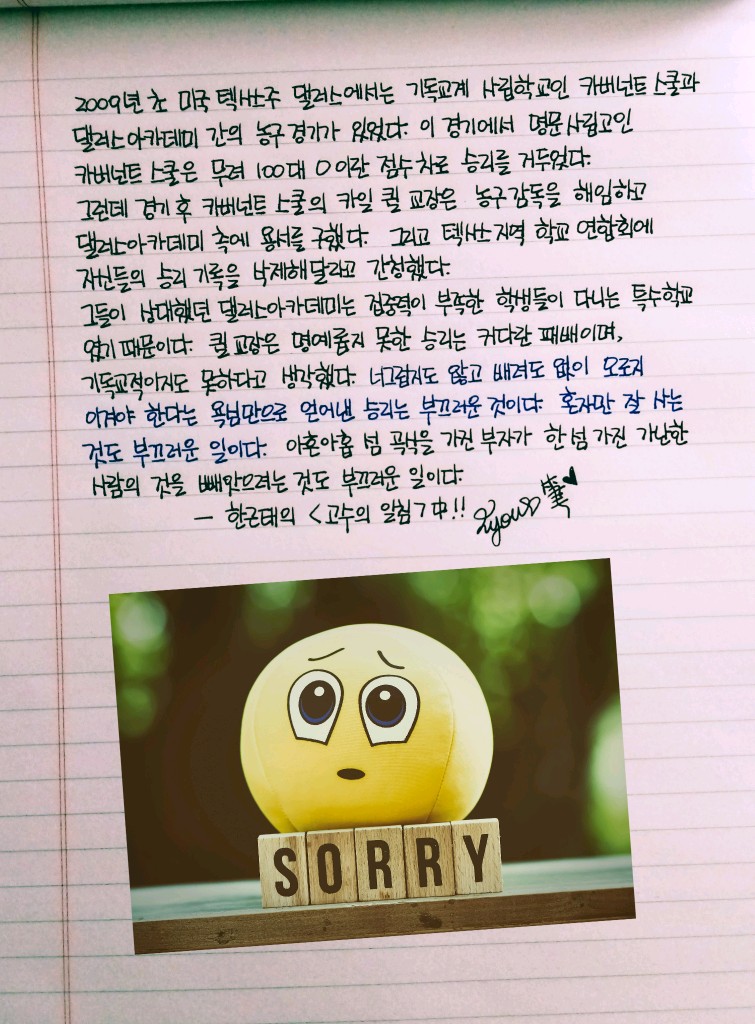 2009년 초 미국 텍사스주 댈러스에서는 기독교계 사립학교인 카버넌트 스쿨과
댈러스아카데미 간의 농구 경기가 있었다. 이 경기에서 명문사립고인
카버넌트 스쿨은 무려 100대 0이란 점수차로 승리를 거두었다.
그런데 경기 후 카버넌트 스쿨의 카일 퀼 교장은 농구감독을 해임하고
댈러스아카데미 측에 용서를 구했다. 그리고 텍사스지역 학교 연합회에
자신들의 승리 기록을 삭제해달라고 간청했다.
그들이 상대했던 댈러스아카데미는 집중력이 부족한 학생들이 다니는 특수학교
였기 때문이다. 퀼 교장은 명예롭지 못한 승리는 커다란 패배이며,
기독교적이지도 못하다고 생각했다. 너그럽지도 않고 배려도 없이 오로지
이겨야 한다는 욕심만으로 얻어낸 승리는 부끄러운 것이다. 혼자만 잘 사는
것도 부끄러운 일이다. 아흔아홉 섬 곡식을 가진 부자가 한 섬 가진 가난한
사람의 것을 빼앗으려는 것도 부끄러운 일이다.
- 한근태의 <고수의 일침> 中!!
SORRY